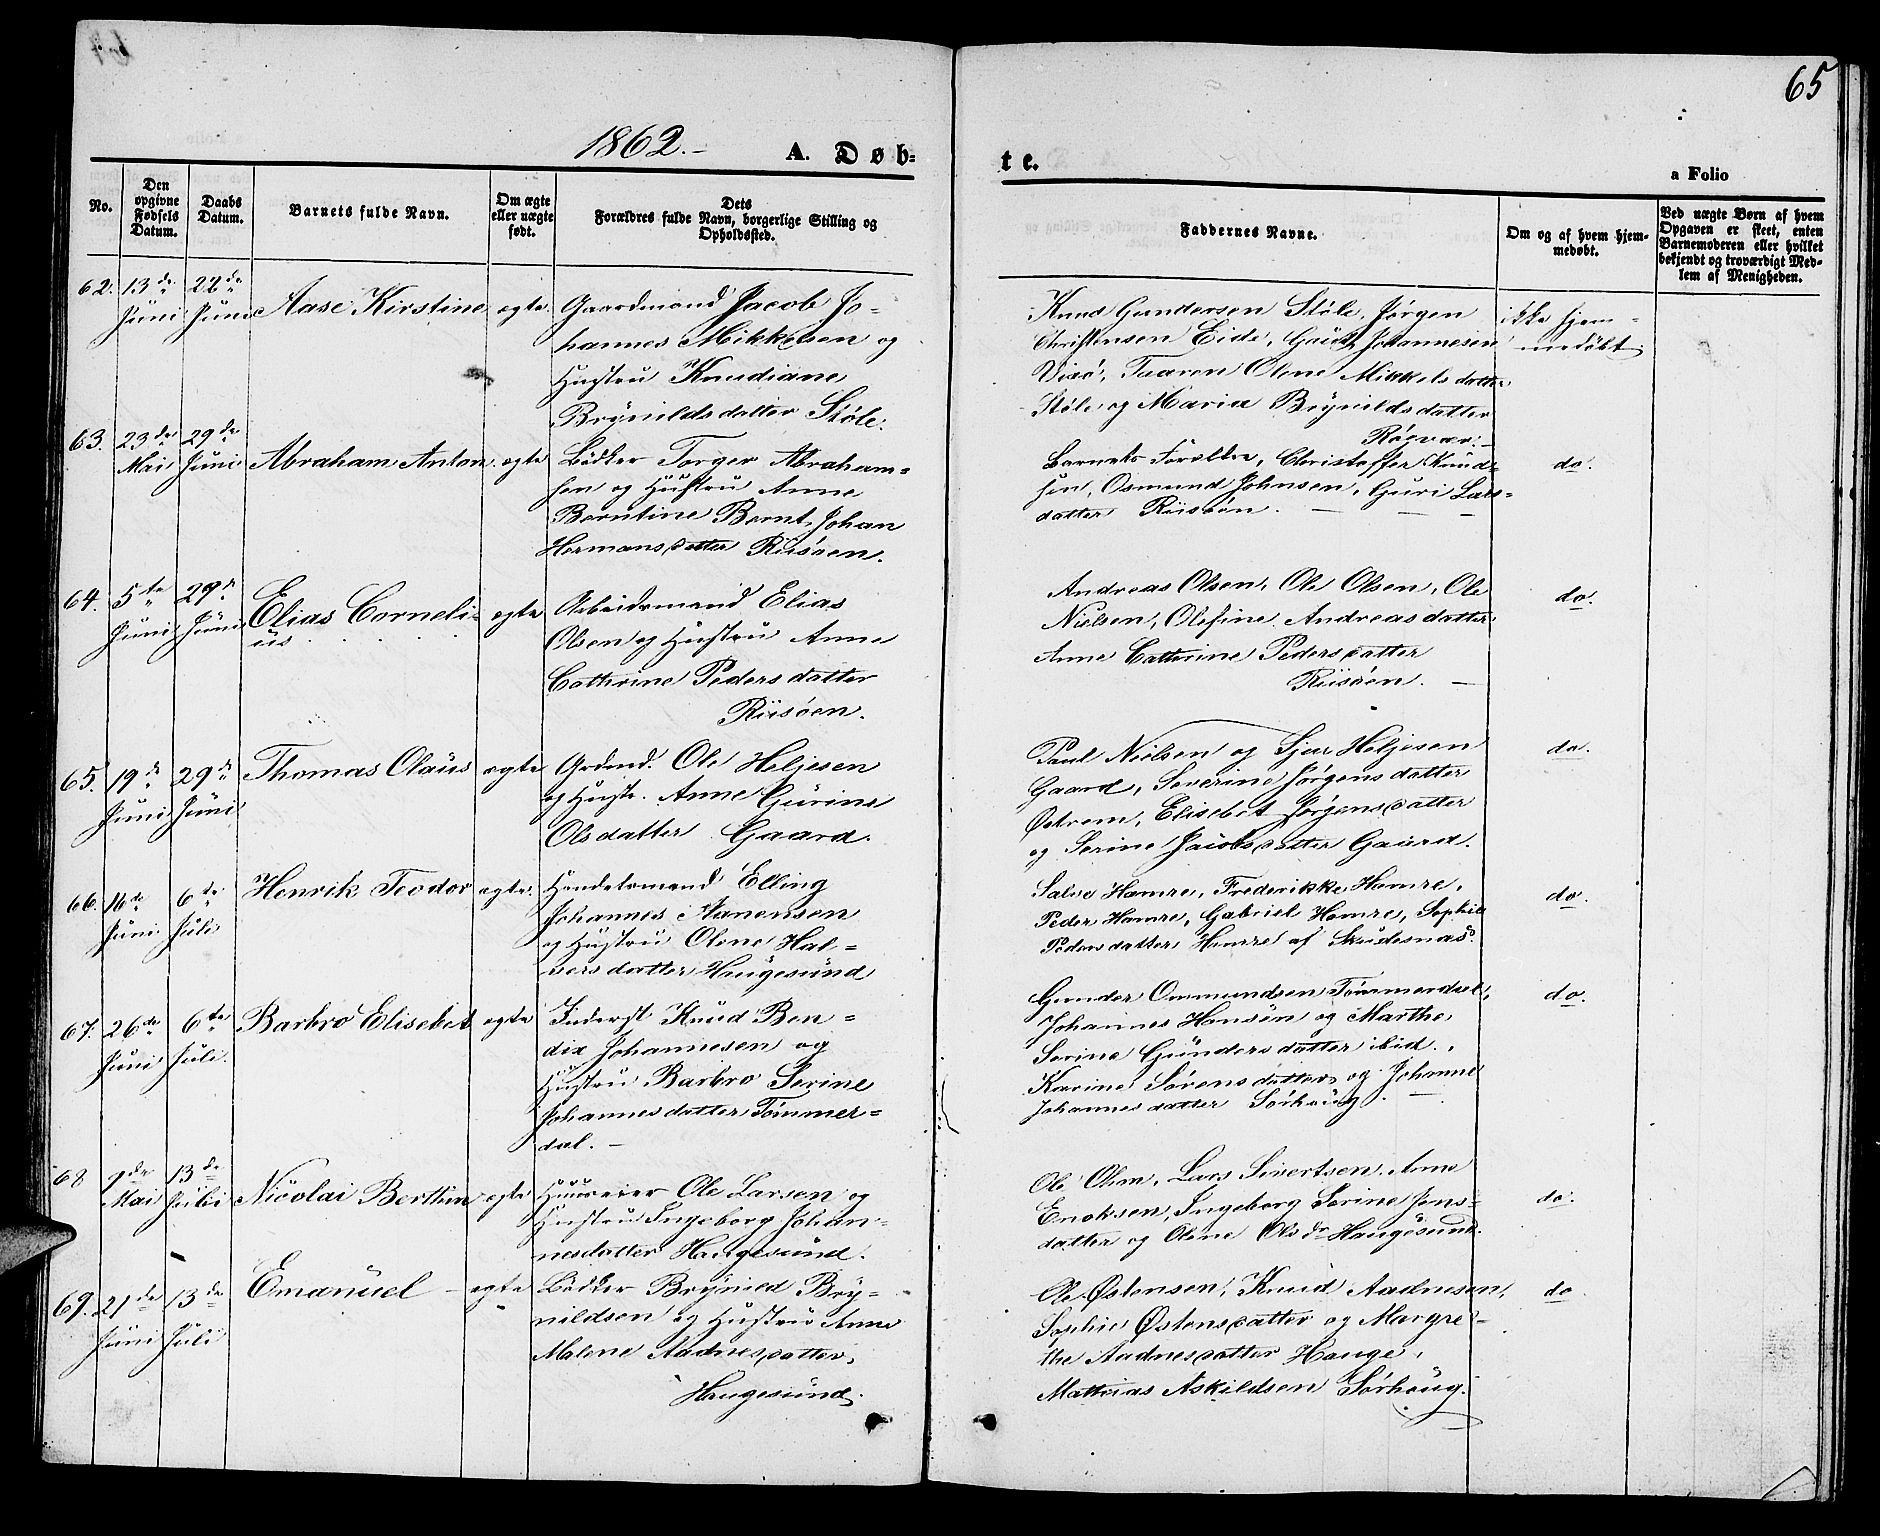 65
1862.-
A. Døb-
te.
a Folio
No.
Den opgivne Fødsels Datum.
Daabs Datum.
Barnets fulde Navn.
Om ægte eller uægte født.
Dets Forældres fulde Navn, borgerlige Stilling og Opholdssted.
Faddernes Navne.
Om og af hvem hjem-
medøbt.
Ved uægte Børn af hvem
Opgaven er skeet, enten
Barnemoderen eller hvilket
bekjendt og troværdigt Med-
lem af Menigheden.
62. 13de Juni
Juni
Aase Kirstine
egte
Gaardmand Jacob Jo-
hannes Mikkelsen og
Hustru Knudiane
Brynildsdatter Støle.
Knud Gundersen Støle, Jørgen
Christensen Eide, Johannesen
Visø, Taaren Olene Mikkelsdatter
Støle og Maria Brynildsdatter
Røgvær.-
ikke hjem-
medøbt.
63. 23de Mai
29de Juni
Abraham Anton
egte
Bødker Torger Abraham-
sen og Hustru Anne
Berntine Bernt Johan
Hermansdatter Riisøen.
Barnets Forældre, Christoffer Knud-
sen, Osmund Johnsen, Guri Lars-
datter Riisøen.
do.
64. 5te Juni
29de Juni
Elias Corneli-
us
egte
Arbeidsmand Elias
Olsen og Hustru Anne
Cathrine Pedersdatter
Riisøen.
Andreas Olsen, Ole Olsen, Ole
Nielsen, Olefine Andreasdatter
Anne Cathrine Pedersdatter
Riisøen.
do.
65. 19de Juni
29de Juni
Thomas Olaus
egte
Grdmd. Ole Heljesen
og Hustr. Anne Gurine
Olsdatter Gaard.
Paul Nielsen og Sjur Heljesen
Gaard, Severine Jørgensdatter
Østrem, Elisebet Jørgensdatter
og Serine Jacobsdatter Gaard.
do.
66. 16de Juni
6te Juli
Henrik Teodor
egte
Handelsmand Elling
Johannes Aanensen
og Hustru Olene Hal-
vorsdatter Haugesund
Salve Hamre, Frederikke Hamre,
Peder Hamre, Gabriel Hamre, Sophie
Pedersdatter Hamre af Skudesnæs.
do.
67. 26de Juni
6te Juli.
Barbro Elisebet
egte
Inderst Knud Ben-
dix Johannesen og
Hustru Barbro Serine
Johannesdatter Tømmer-
dal.-
Gunder Ommundsen Tømmerdal,
Johannes Hansen og Marthe
Serine Gundersdatter ibid.,
Karine Sørensdatter og Johanne
Johannesdatter Sørhaug.
do.
68 9de Mai
13de Juli
Nicolai Berthin
egte
Huuseier Ole Larsen og
Hustru Ingeborg Johan-
nesdatter Haugesund.
Ole Ohm, Lars Sivertsen, Anne
Enoksen, Ingeborg Serine Jens-
datter og Olene Olsdr Haugesund.
do.
69. 21de Juni
13de Juli
Emanuel
egte
Bødker Brynild Bry-
nildsen og Hustru Anne
Malene Aadnesdatter,
Haugesund.
Ole Østensen, Knud Aadnesen,
Sophie Østensdatter og Margre-
the Aadnesdatter Hauge,
Mathias Askildsen Sørhaug.
do